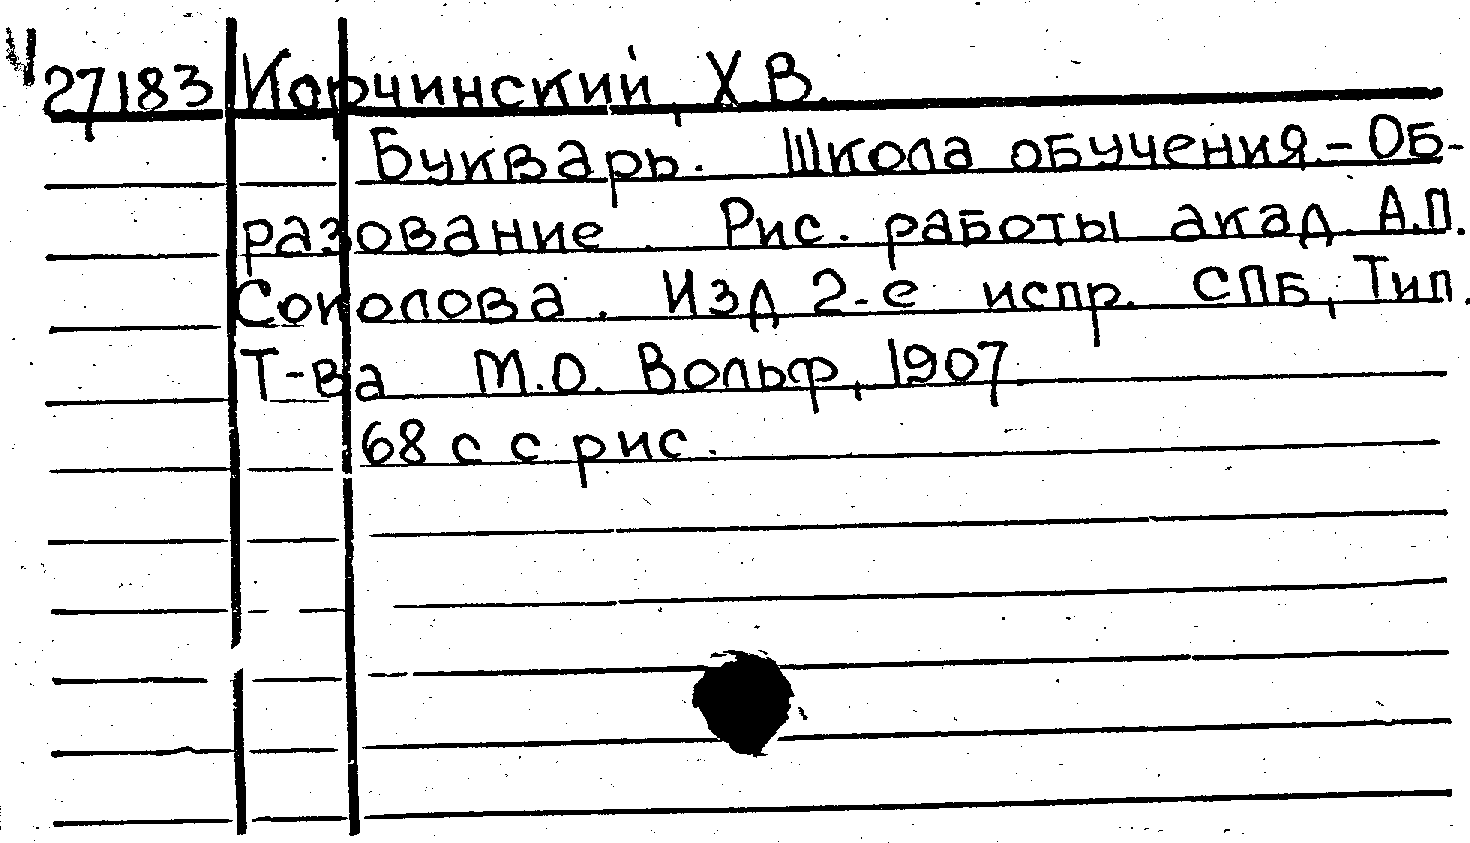 27183 Корчинский, Х В.
Букварь. Школа обучения. - Об-
разование. Рис. работы акад. А.П.
Соколова. Изд 2-е испр. СПБ, Тип.
Т-ва М.О. Вольф, 1907
68 с с рис.